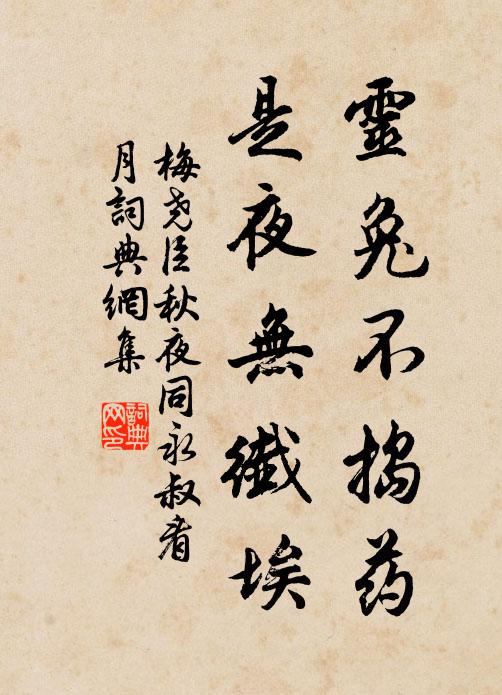 靈兔不搗药
是夜無纖埃
梅尧臣秋夜同永叔看
月詞典網集
詞典
网印